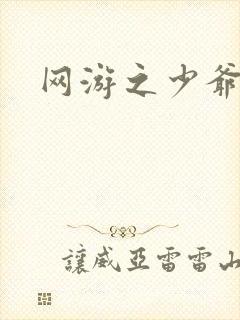 网游之少爷
讓威亚雷雷山